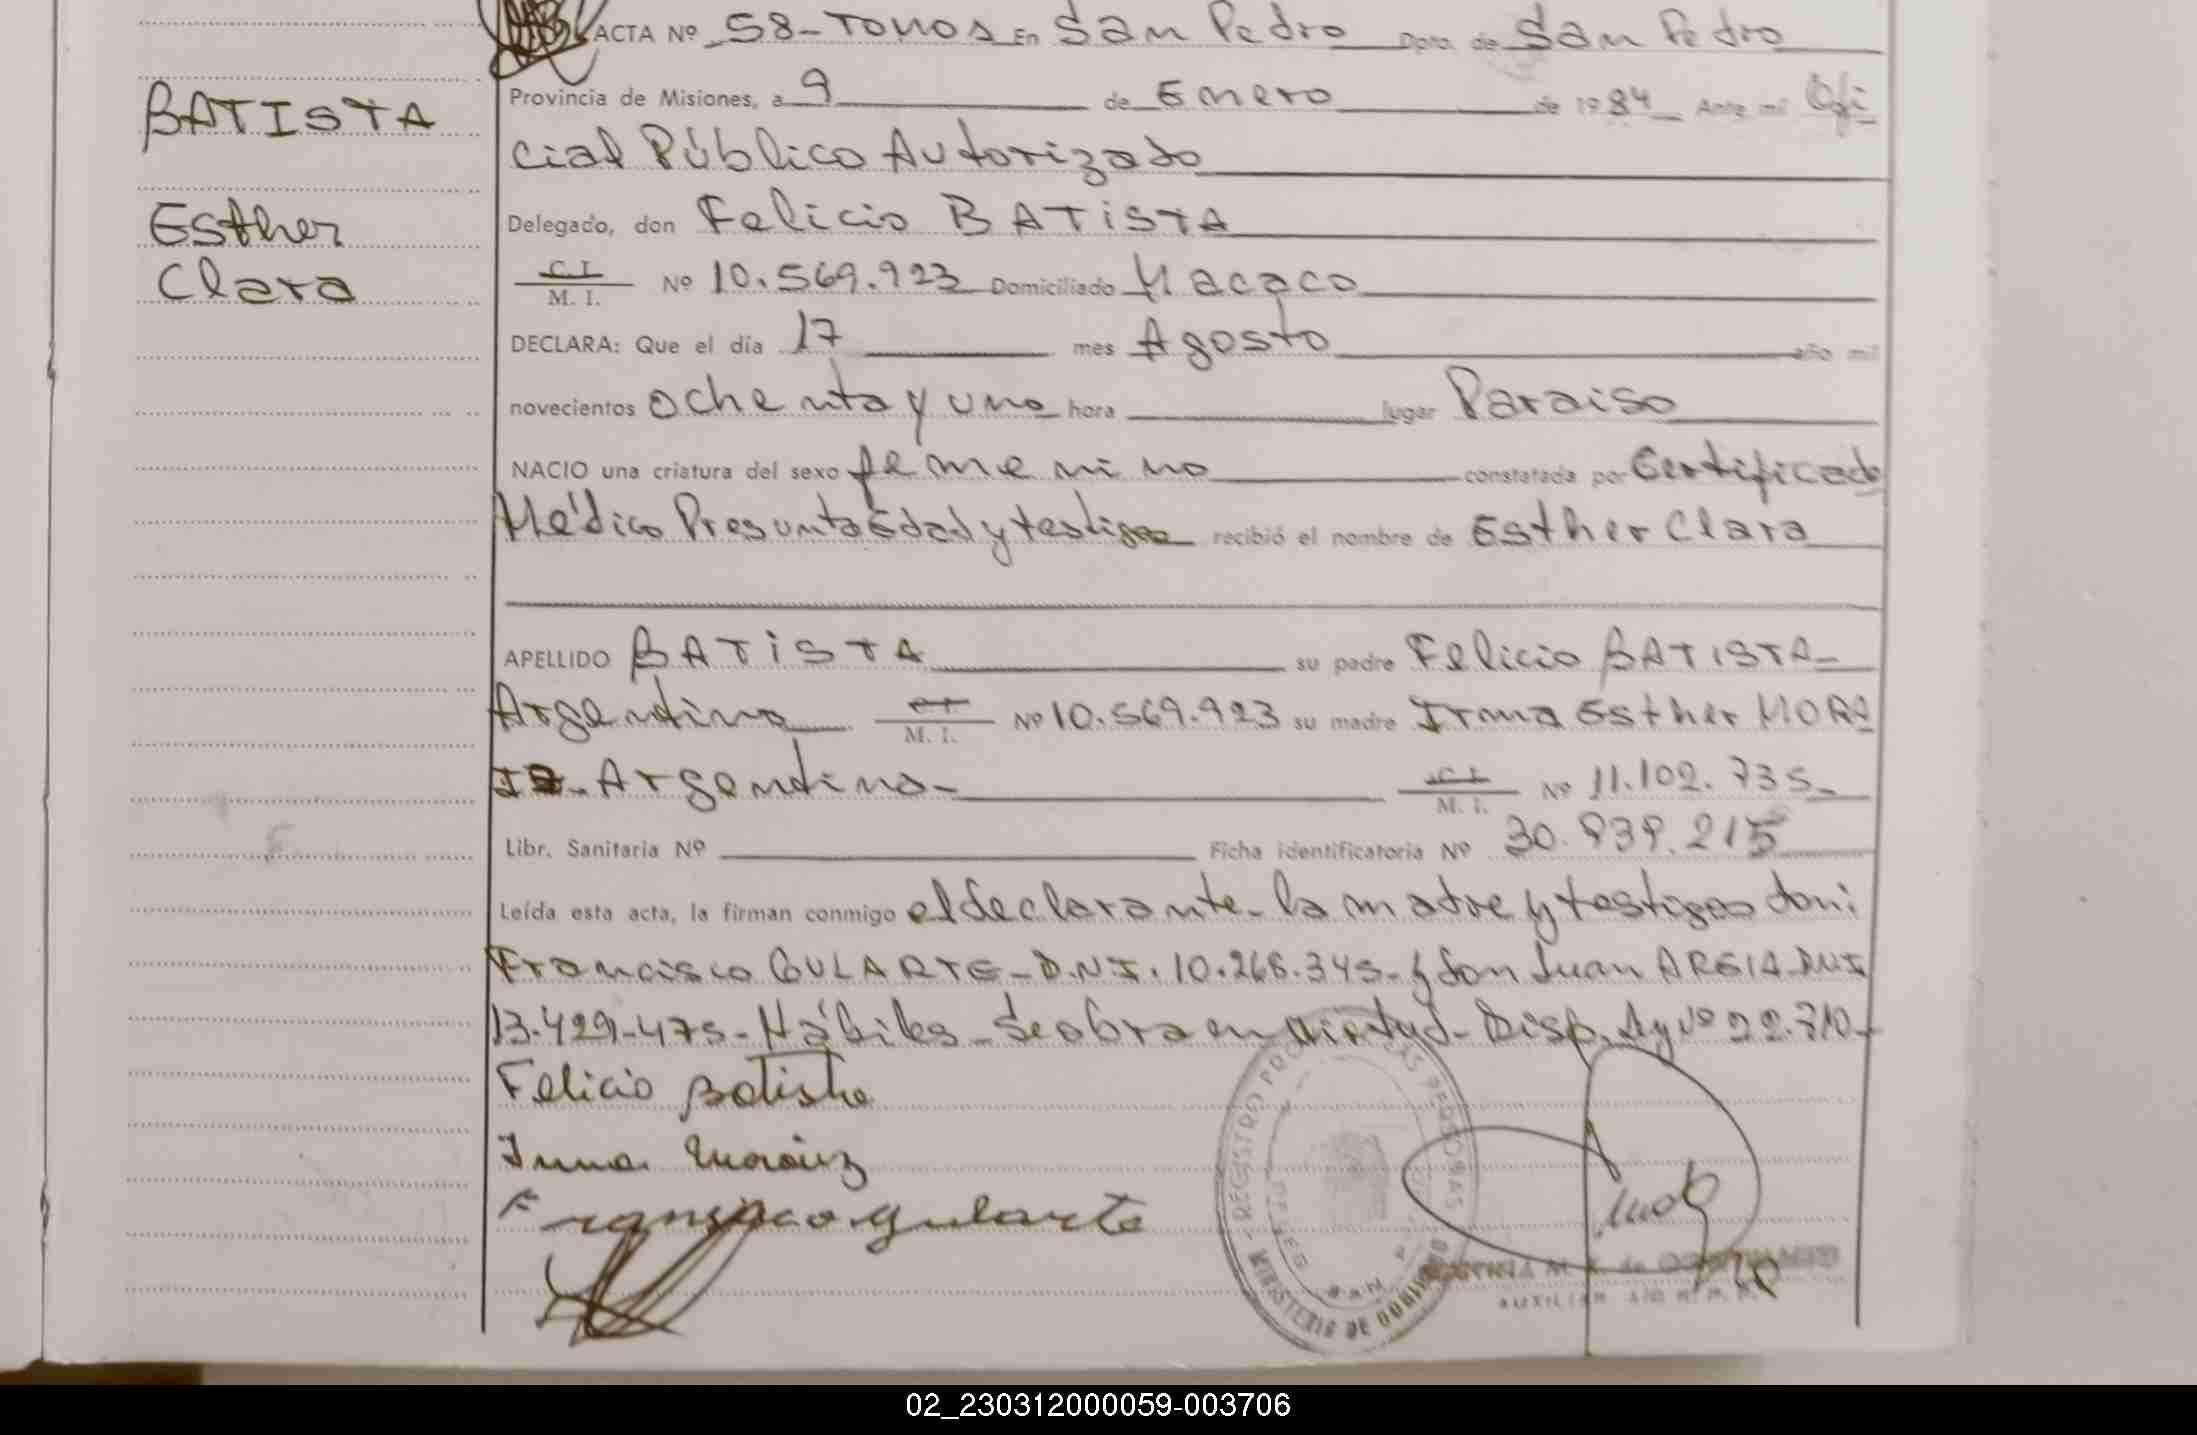 ACTA Nº 58-Tomos En San Pedro Dpto. de San Pedro
BATISTA
Esther
Clara
Provincia de Misiones, a 9 de Enero de 1984 Ante mi Ofi
cial Público Autorizado
Delegado, don Felicio BATISTA
C. I.
M. I. Nº 10.569.923 Domiciliado Macaco
DECLARA: Que el día 17 mes Agosto año mil
novecientos ochenta y uno hora lugar Paraiso
NACIO una criatura del sexo femenino constatada por Certificado
Médico Presunta Edad y testigos recibió el nombre de Esther Clara
APELLIDO BATISTA su padre Felicio BATISTA-
Argentino M. I. Nº 10.569.923 su madre Irma Esther MORA
IZ- Argentina- C. I. M. I. Nº 11.102.735-
Libr. Sanitaria Nº Ficha identificatoria Nº 30.839.215
Leída esta acta, la firman conmigo el declarante- la madre y testigos don:
Francisco GULARTE- D.N.I. 10.268.345- y don Juan ARGIA- DNI
13.429-475- Hábiles- Se obra en virtud- Disp. Ley Nº 22.810-
Felicio Batista
Irma Moraiz
Francisco gularte
REGISTRO PROV. DE LAS PERSONAS
MINISTERIO DE GOBIERNO
AUXILIAR
02_230312000059-003706